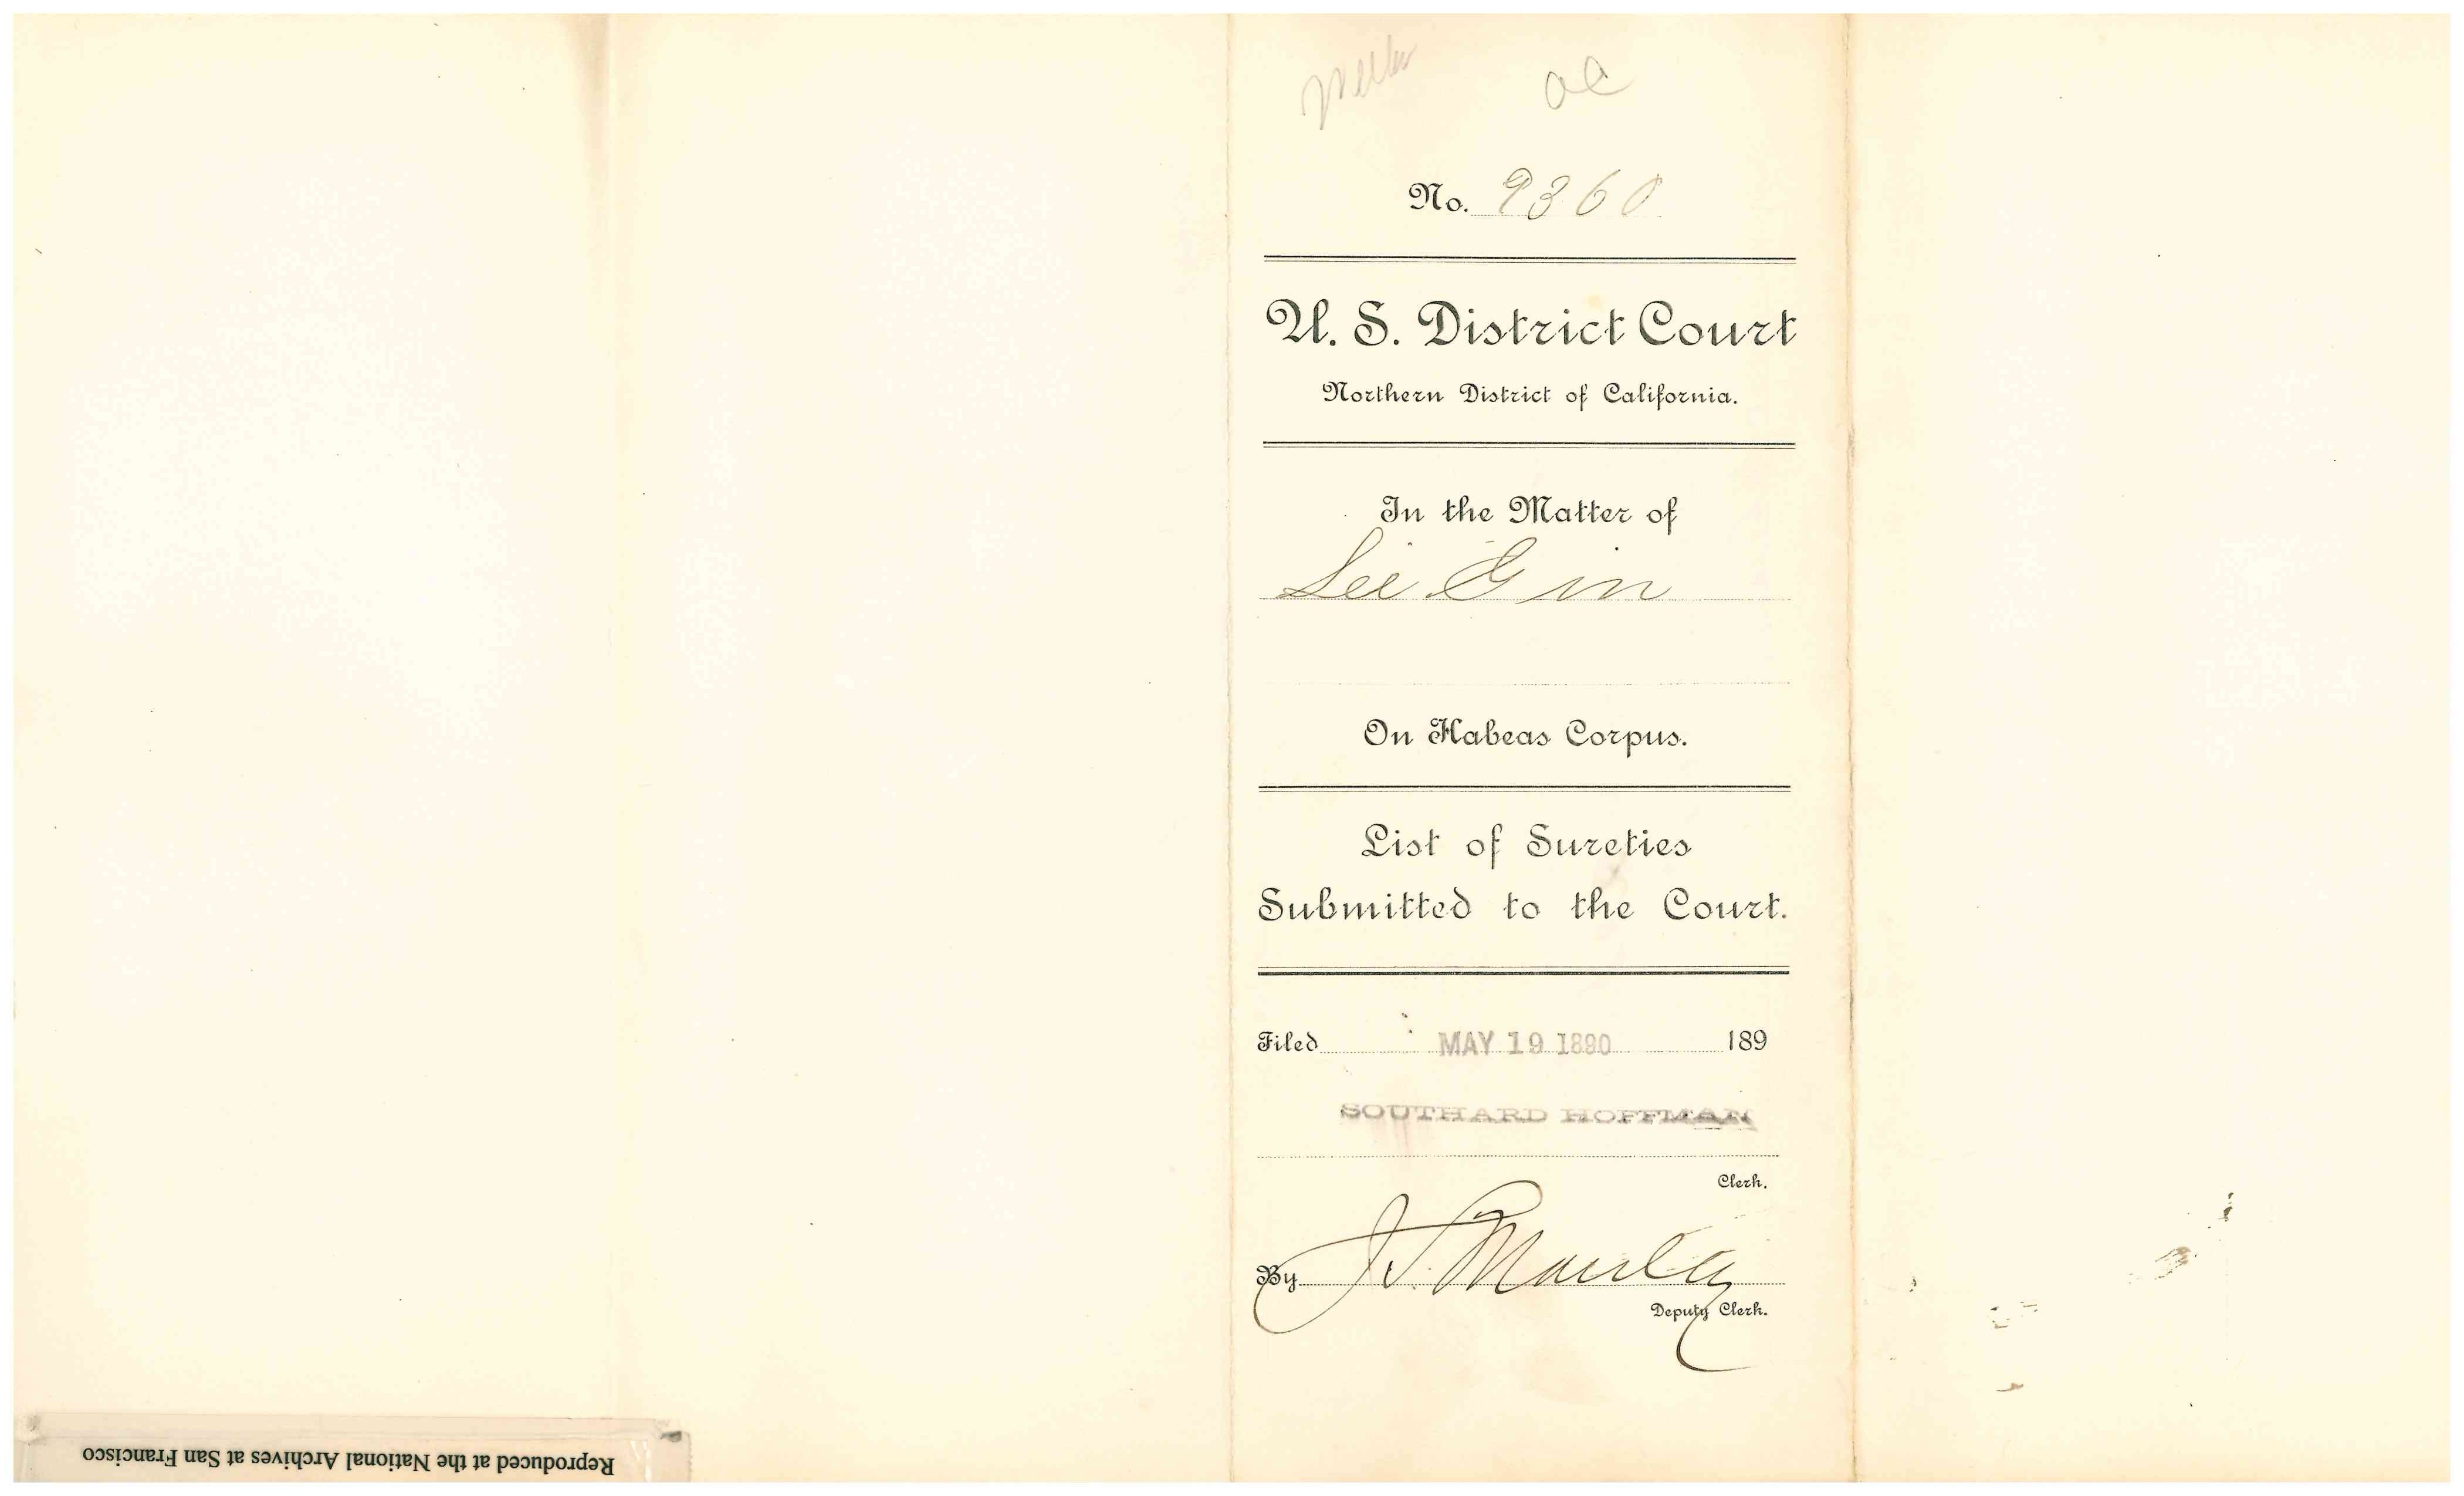 No. 9360
U. S. District Court
Northern District of California.
In the Matter of
Lee Gin
On Habeas Corpus.
List of Sureties
Submitted to the Court.
Filed MAY 19 1890 189
SOUTHARD HOFFMAN
Clerk.
By J. S. Manley
Deputy Clerk.
Reproduced at the National Archives at San Francisco